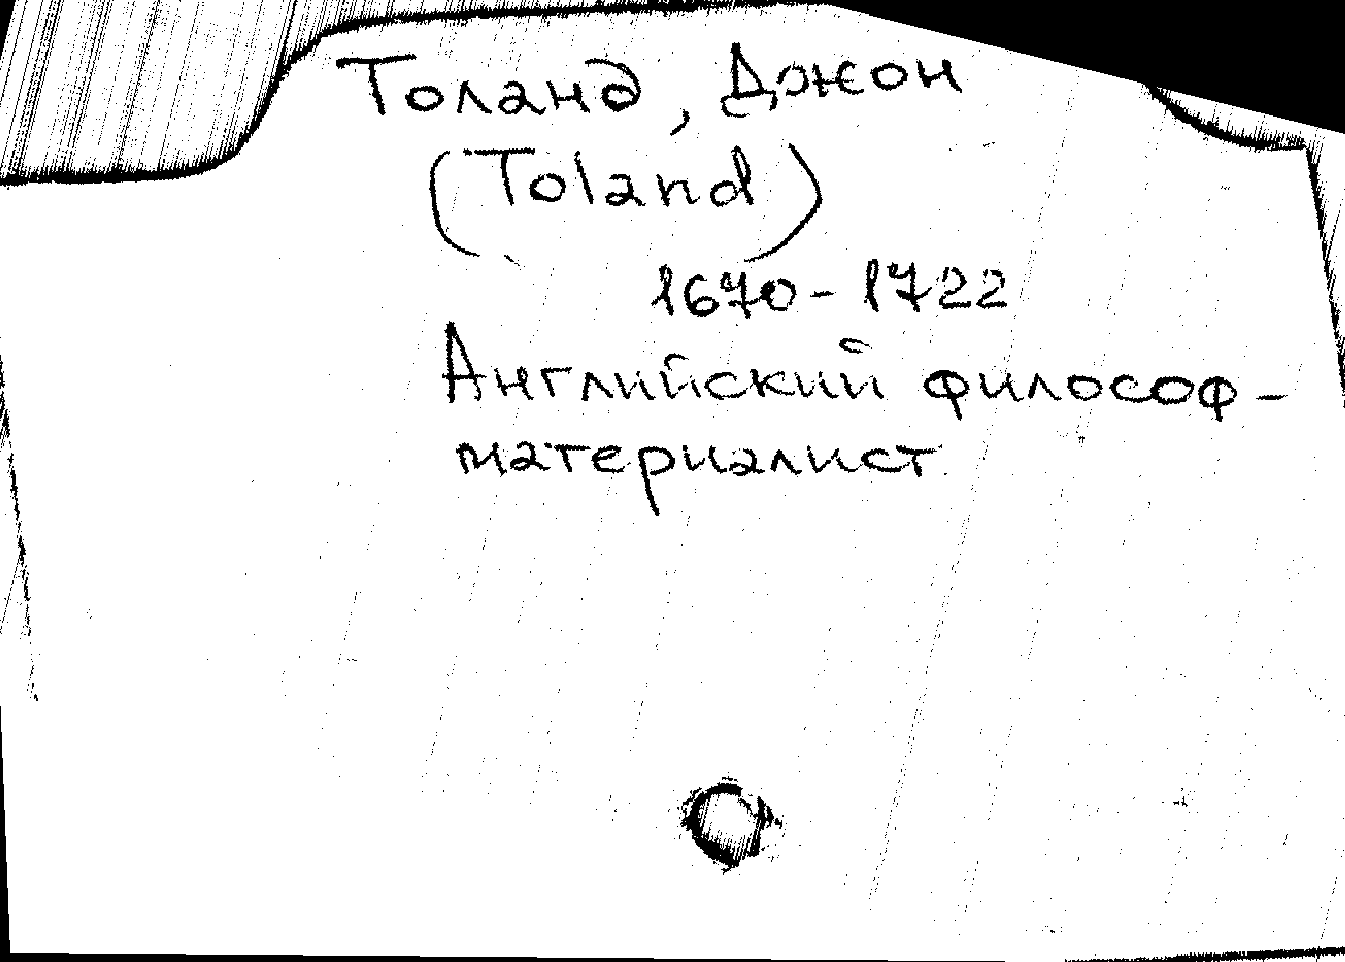 Толанд, Джон
(Toland)
1670-1722
Английский философ-
материалист